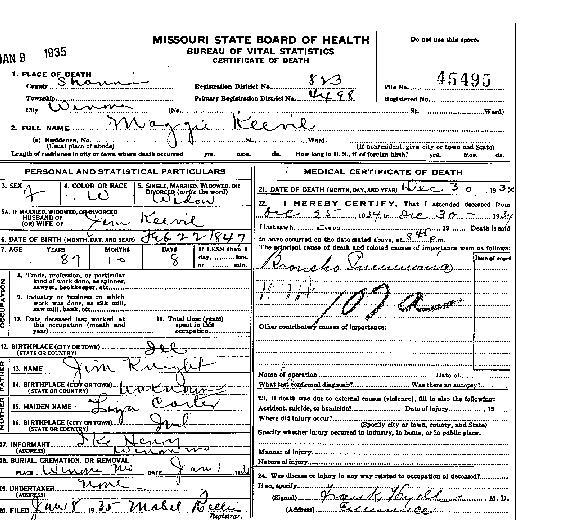 JAN 9 1935
MISSOURI STATE BOARD OF HEALTH
BUREAU OF VITAL STATISTICS
CERTIFICATE OF DEATH
Do not use this space.
1. PLACE OF DEATH
County Shannon Registration District No. 823 File No. 45495
Township Primary Registration District No. 4498 Registered No.
City Winona (No. St. Ward)
2. FULL NAME Maggie Keevil
(a) Residence, No. St. Ward.
(Usual place of abode) (If nonresident give city or town and State)
Length of residence in city or town where death occurred yrs. mos. ds. How long in U. S., if of foreign birth? yrs. mos. ds.
PERSONAL AND STATISTICAL PARTICULARS
3. SEX F
4. COLOR OR RACE W
5. SINGLE, MARRIED, WIDOWED, OR DIVORCED (write the word) Widow
5A. IF MARRIED, WIDOWED, OR DIVORCED
HUSBAND OF
(OR) WIFE OF Jim Keevil
6. DATE OF BIRTH (MONTH, DAY, AND YEAR) Feb 22 1847
7. AGE YEARS MONTHS DAYS If LESS than 1
87 10 8 day, hrs.
or min.
OCCUPATION
8. Trade, profession, or particular
kind of work done, as spinner,
sawyer, bookkeeper, etc.
9. Industry or business in which
work was done, as silk mill,
saw mill, bank, etc.
10. Date deceased last worked at
this occupation (month and
year)
11. Total time (years)
spent in this
occupation
12. BIRTHPLACE (CITY OR TOWN) Ill
(STATE OR COUNTRY)
FATHER
13. NAME Jim Knight
14. BIRTHPLACE (CITY OR TOWN) unknown
(STATE OR COUNTRY)
MOTHER
15. MAIDEN NAME Carter
16. BIRTHPLACE (CITY OR TOWN)
(STATE OR COUNTRY)
17. INFORMANT Henry
(ADDRESS) Winona
18. BURIAL, CREMATION, OR REMOVAL
PLACE Winona Mo DATE Jan 1
19. UNDERTAKER None
(ADDRESS)
20. FILED Jan 8 1935 Mabel
Registrar.
MEDICAL CERTIFICATE OF DEATH
21. DATE OF DEATH (MONTH, DAY, AND YEAR) Dec 30, 193
22. I HEREBY CERTIFY, That I attended deceased from
Dec 25 1934, to Dec 30 1934
I last saw h alive on Death is said
to have occurred on the date stated above, at m.
The principal cause of death and related causes of importance were as follows:
Date of onset
Broncho Pneumonia
107 a
Other contributory causes of importance:
Name of operation Date of
What test confirmed diagnosis? Was there an autopsy?
23. If death was due to external causes (violence), fill in also the following:
Accident, suicide, or homicide? Date of injury , 19
Where did injury occur?
(Specify city or town, county, and State)
Specify whether injury occurred in industry, in home, or in public place.
Manner of injury
Nature of injury
24. Was disease or injury in any way related to occupation of deceased?
If so, specify
(Signed) Frank Hyde M. D.
(Address) Eminence